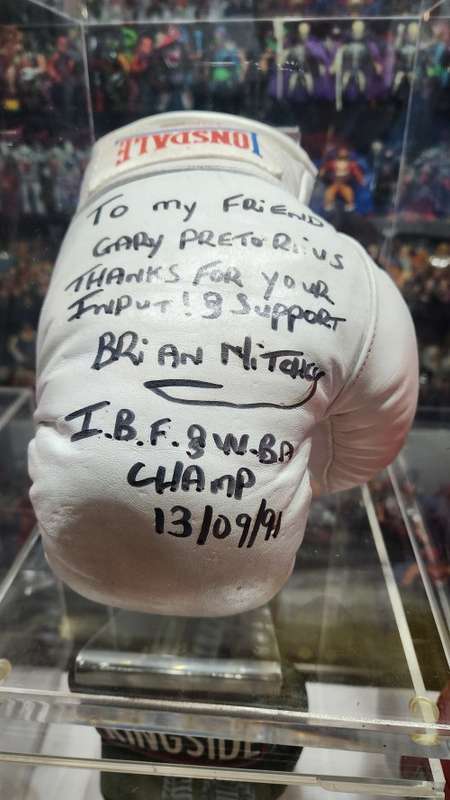 LONSDALE
To my FRIEND
GARY PRETORIUS
THANKS FOR YOUR
INPUT! & SUPPORT
BRIAN MITCHELL
I.B.F. & W.BA
CHAMP
13/09/91
RINGSIDE